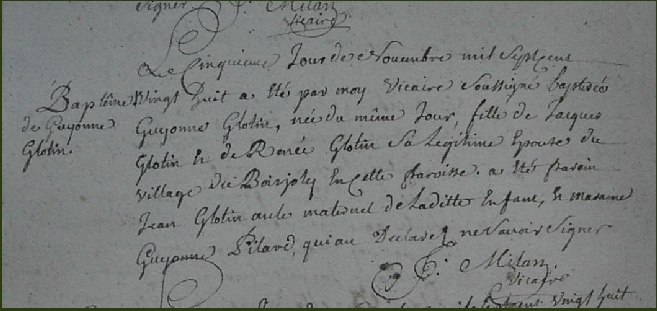 Signer P. Milan
Vicaire
Le Cinquieme Jour de Novembre mil Septcent
Baptême
de Guyonne
Glotin.
Vingt huit a été par moy Vicaire Soussigné baptisée
Guyonne Glotin, née du même Jour, fille de Jacques
Glotin & de Renée Glotin Sa Légitime Epouse du
Village du Boisjoly En Cette Paroisse. a été Parain
Jean Glotin maternel de Laditte Enfant, & maraine
Guyonne Pilard, qui ont Declaré ne Savoir Signer
P. Milan
Vicaire
Vingt huit